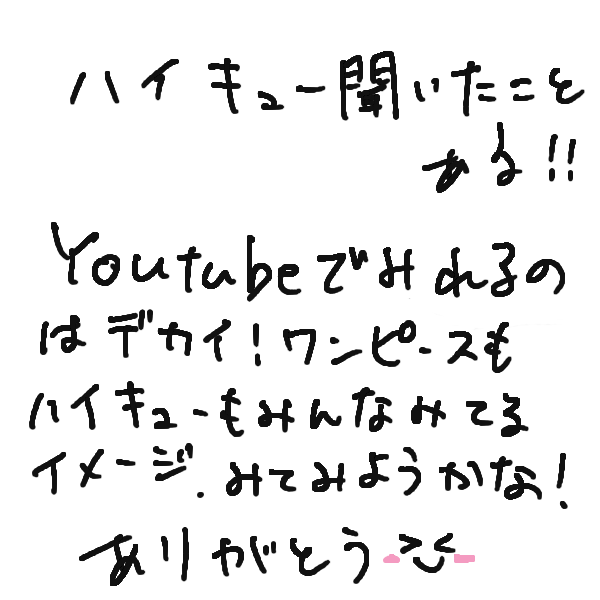 ハイキュー聞いたこと
ある!!
Youtubeでみれるの
はデカイ!ワンピースも
ハイキューもみんなみてる
イメージ.みてみようかな!
ありがとう